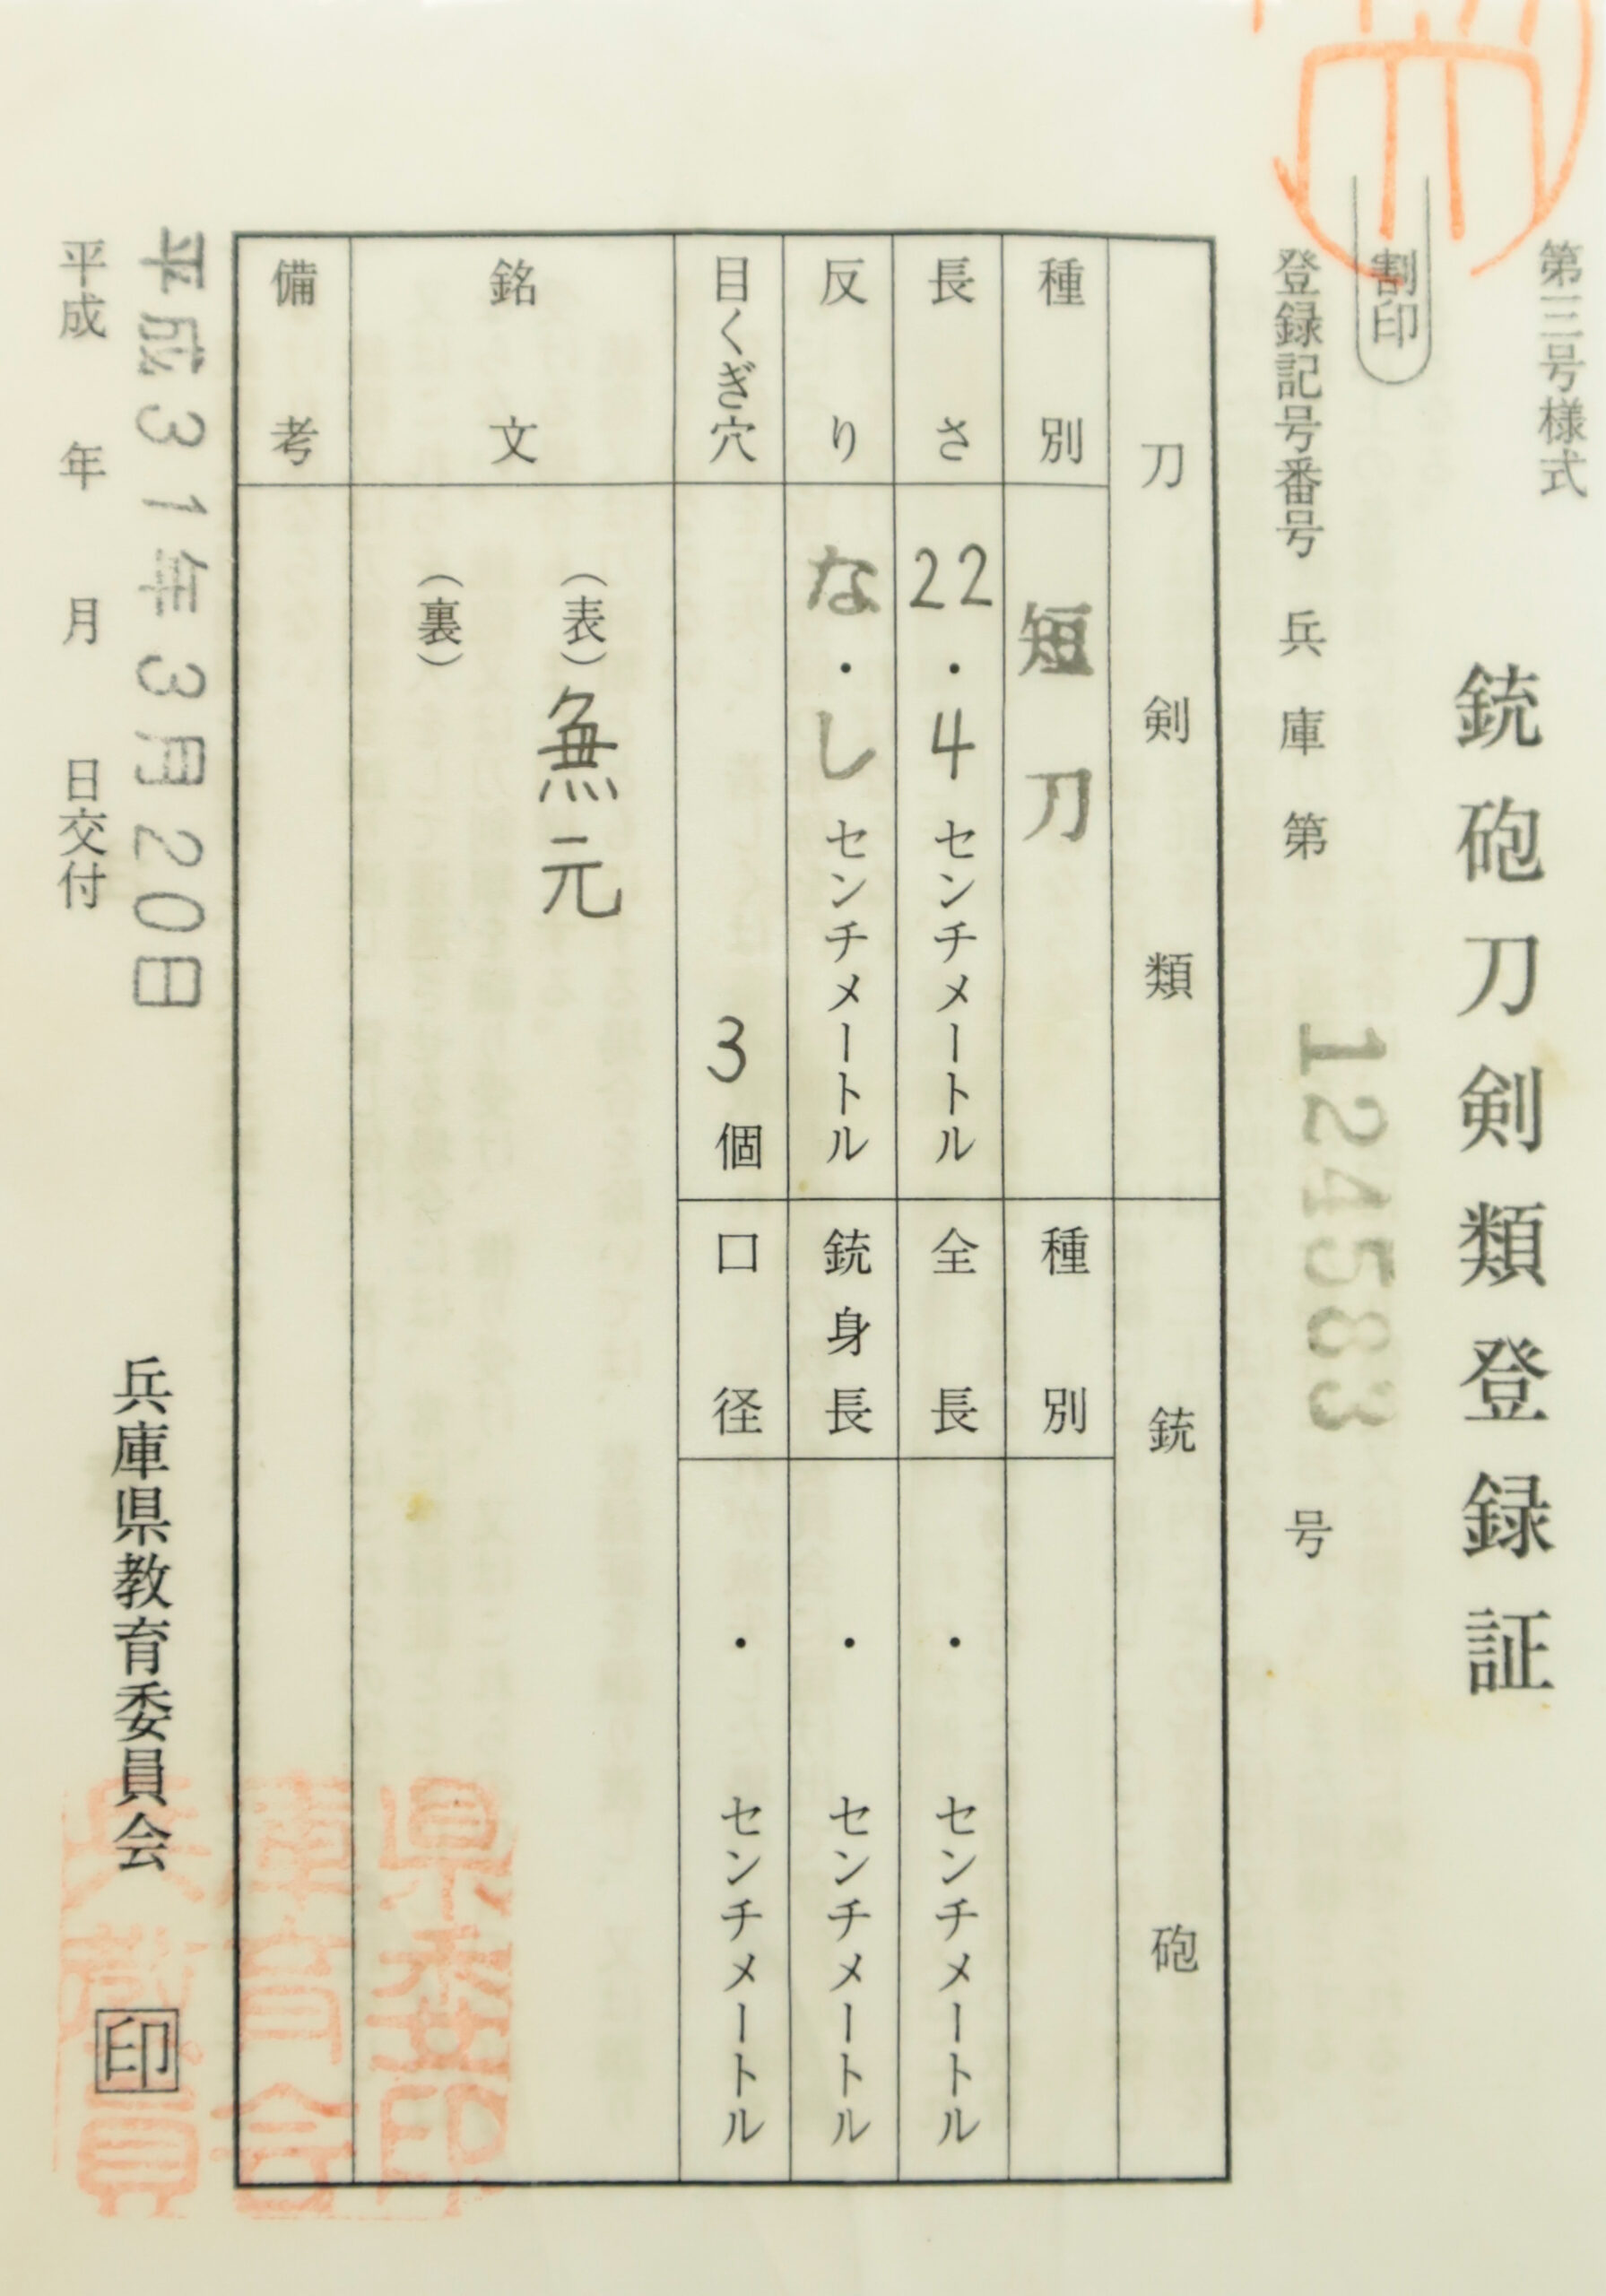 第三号様式
銃砲刀剣類登録証
割印
登録記号番号 兵庫 第 124583 号
刀剣類 銃砲
種別 短刀 種別
長さ 22・4センチメートル 全長 ・ センチメートル
反り な・しセンチメートル 銃身長 ・ センチメートル
目くぎ穴 3個 口径 ・ センチメートル
銘文 (表)無元
(裏)
備考
平成31年3月20日
平成 年 月 日交付
兵庫県教育委員会 印